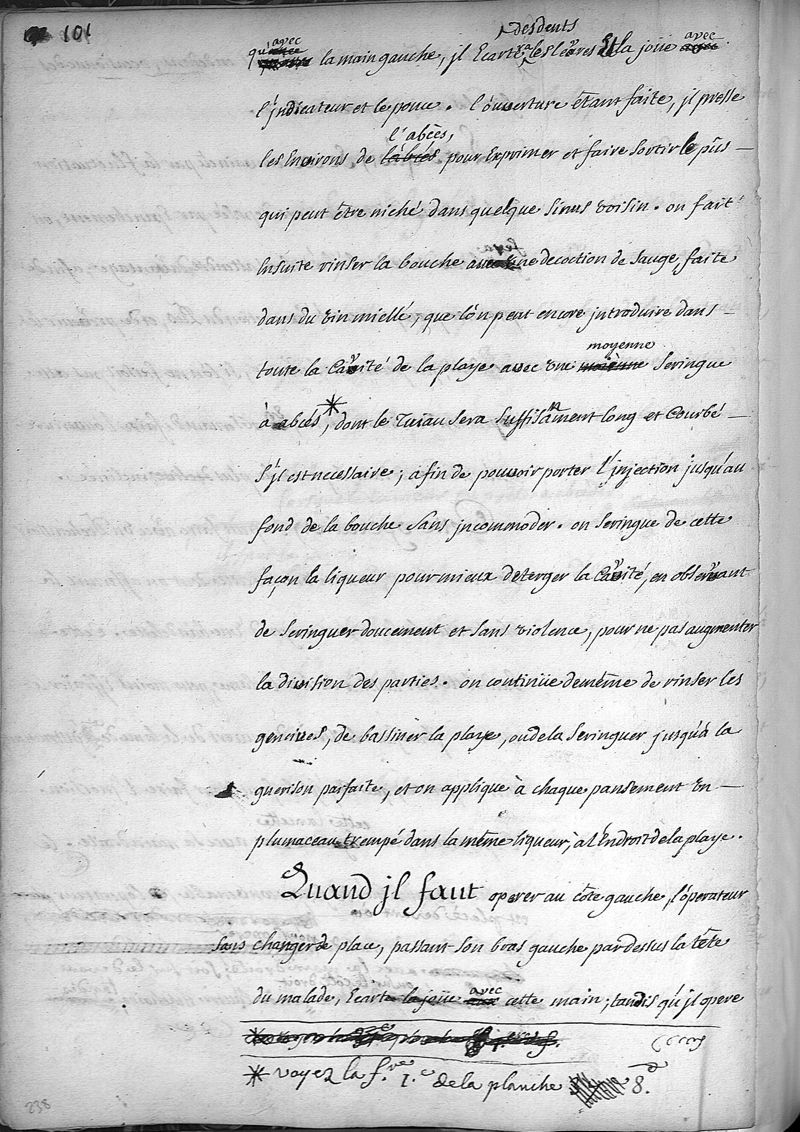 101
des dents
qu'avec la main gauche, jl Ecartera les lévres Et la joüe avec
l'jndicateur et le pouce. l'ouverture êtant faite, jl presse
l'abcès,
les Environs de l'abcés pour Exprimer et faire sortir le pûs —
qui peut être niché dans quelque sinus voisin. on fait
Ensuite rinser la bouche avec une decoction de sauge, faite
dans du vin miellé, que l'on peut encore jntroduire dans —
moyenne
toute la Cavité de la playe avec une seringue
à abcés *, dont le tuiau sera suffisamment long et Courbé —
s'jl est necessaire; afin de pouvoir porter l'jnjection jusqu'au
fond de la bouche sans jncommoder. on seringue de cette
façon la liqueur pour mieux deterger la Cavité, en observant
de seringuer doucement et sans violence, pour ne pas augmenter
la division des parties. on continüe de même de rinser les
gencives, de bassiner la playe, ou de la seringuer jusqu'à la
guerison parfaite, et on applique à chaque pansement un —
plumaceau trempé dans la même liqueur, à l'Endroit de la playe.
Quand jl faut operer au côte gauche, l'óperateur
sans changer de place, passant son bras gauche par dessus la tête
du malade, Ecarte la joüe avec cette main; tandis qu'jl opere
* voyez la f.ve 1.e de la planche 8.e
238